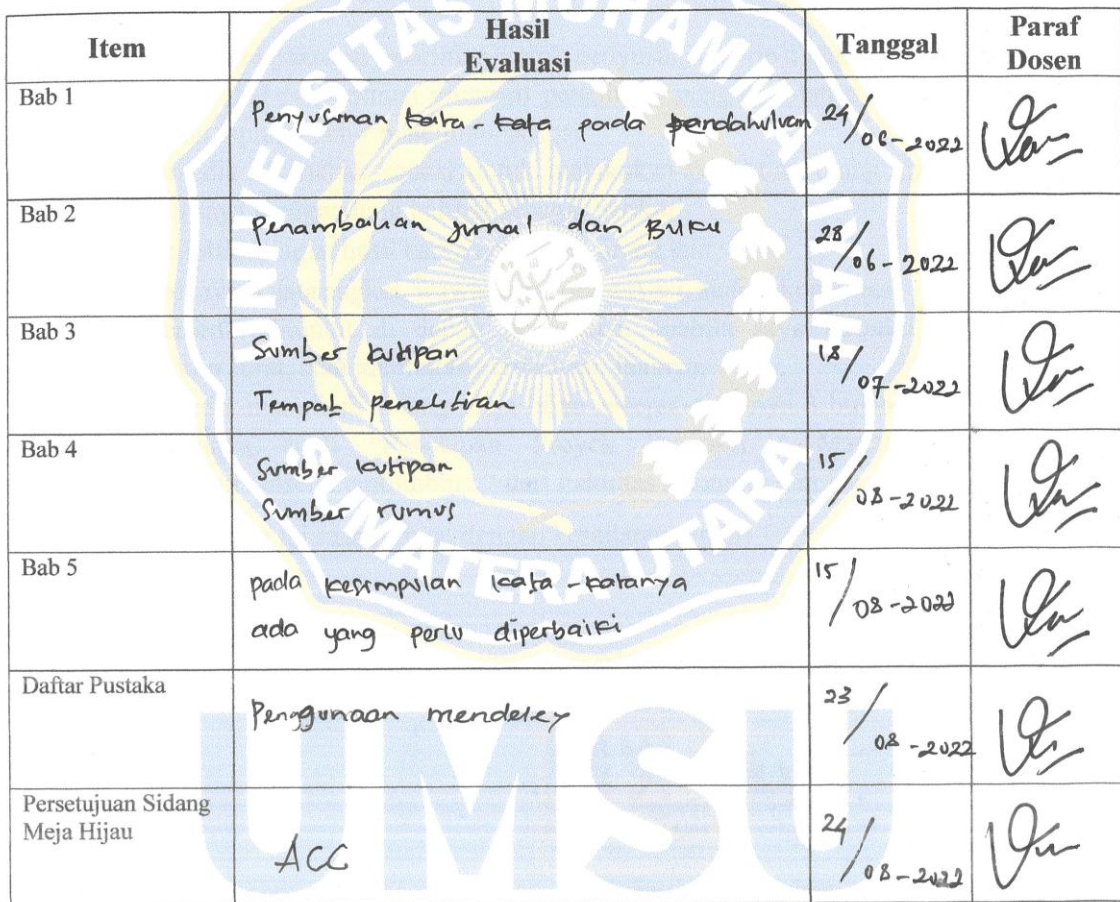 Item
Hasil
Evaluasi
Tanggal
Paraf
Dosen
Bab 1
Penyusunan kata-kata pada pendahuluan
24/06-2022
Bab 2
Penambahan jurnal dan Buku
28/06-2022
Bab 3
Sumber kutipan
Tempat penelitian
18/07-2022
Bab 4
Sumber kutipan
Sumber rumus
15/08-2022
Bab 5
pada kesimpulan kata-katanya
ada yang perlu diperbaiki
15/08-2022
Daftar Pustaka
Penggunaan mendeley
23/08-2022
Persetujuan Sidang
Meja Hijau
ACC
24/08-2022
UNIVERSITAS MUHAMMADIYAH
SUMATERA UTARA
محمدية
UMSU